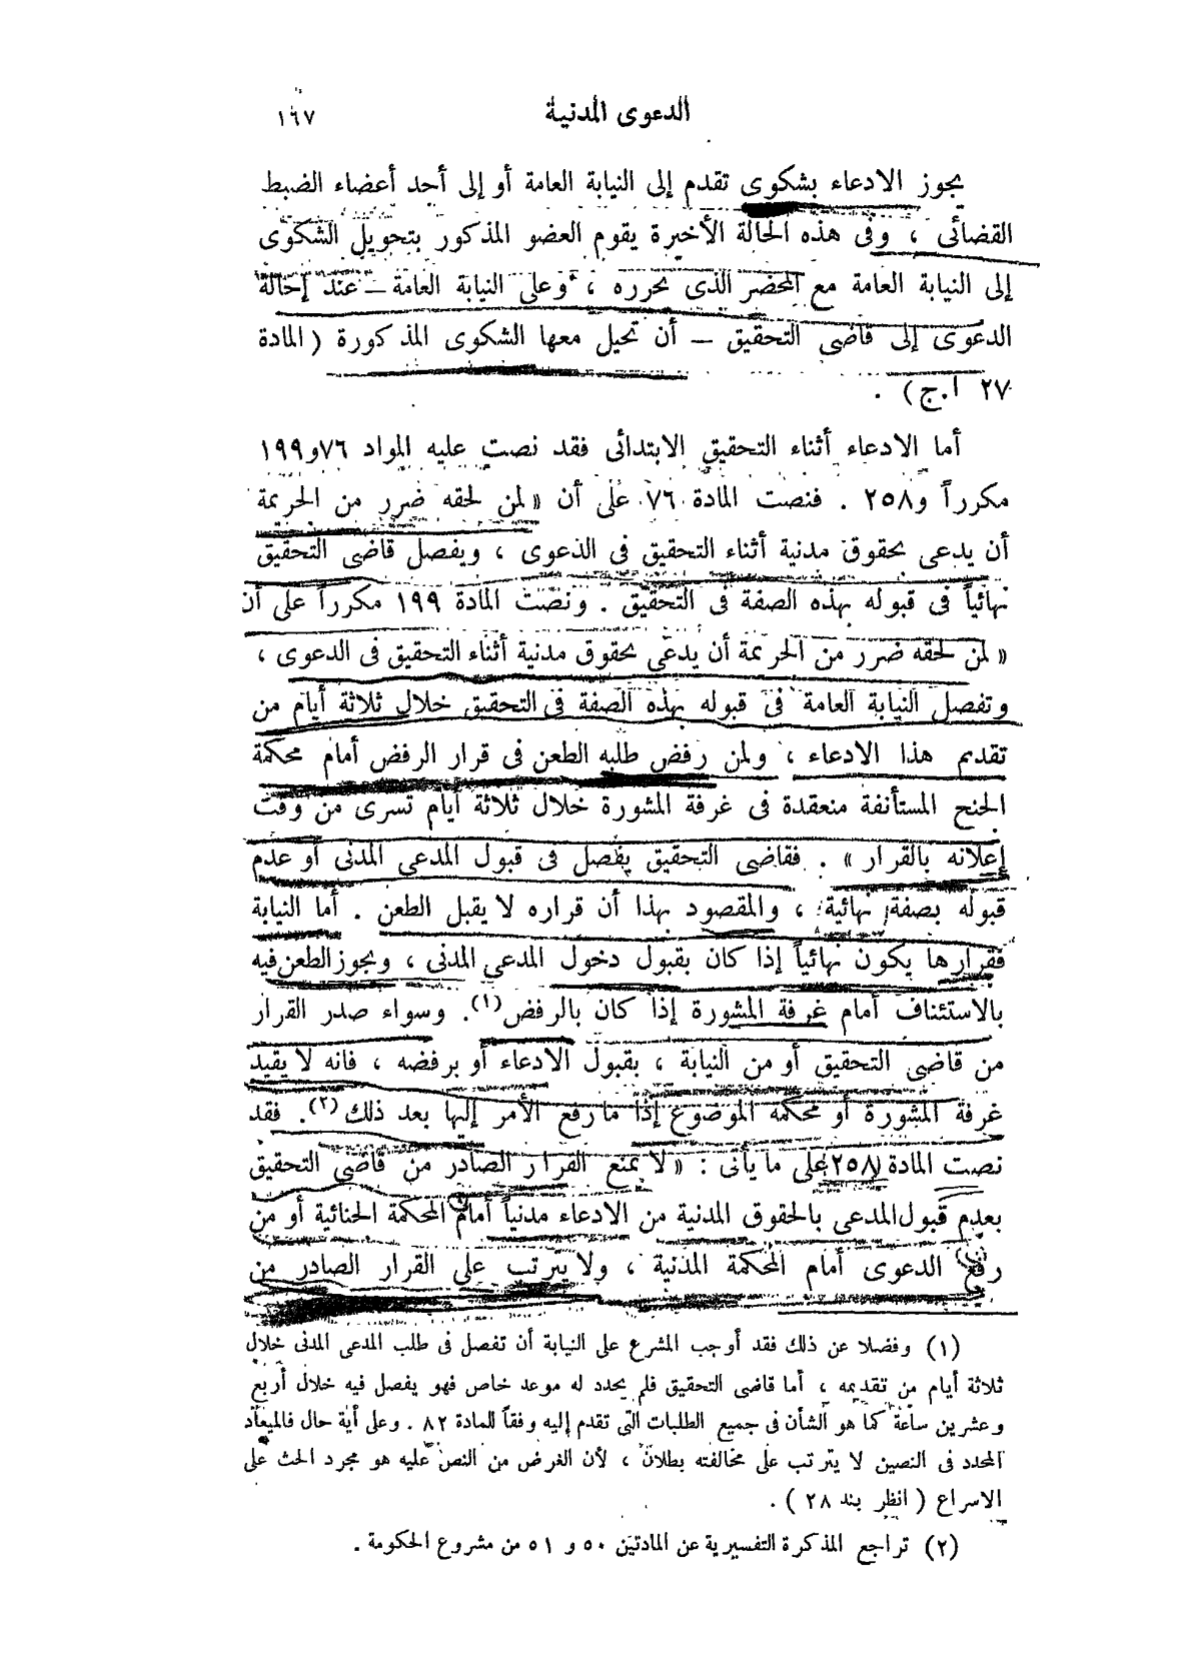 الدعوى المدنية ١٦٧
يجوز الادعاء بشكوى تقدم إلى النيابة العامة أو إلى أحد أعضاء الضبط
القضائى ، وفى هذه الحالة الأخيرة يقوم العضو المذكور بتحويل الشكوى
إلى النيابة العامة مع المحضر الذى يحرره ، وعلى النيابة العامة – عند إحالة
الدعوى إلى قاضى التحقيق – أن تحيل معها الشكوى المذكورة ( المادة
٢٧ ا.ج) .
أما الادعاء أثناء التحقيق الابتدائى فقد نصت عليه المواد ٧٦ و١٩٩
مكرراً و٢٥٨ . فنصت المادة ٧٦ على أن « لمن لحقه ضرر من الجريمة
أن يدعى بحقوق مدنية أثناء التحقيق فى الدعوى ، ويفصل قاضى التحقيق
نهائياً فى قبوله بهذه الصفة فى التحقيق . ونصت المادة ١٩٩ مكرراً على أن
« لمن لحقه ضرر من الجريمة أن يدعى بحقوق مدنية أثناء التحقيق فى الدعوى ،
وتفصل النيابة العامة فى قبوله بهذه الصفة فى التحقيق خلال ثلاثة أيام من
تقديم هذا الادعاء ، ولمن رفض طلبه الطعن فى قرار الرفض أمام محكمة
الجنح المستأنفة منعقدة فى غرفة المشورة خلال ثلاثة أيام تسرى من وقت
إعلانه بالقرار » . فقاضى التحقيق يفصل فى قبول المدعى المدنى أو عدم
قبوله بصفة نهائية ، والمقصود بهذا أن قراره لا يقبل الطعن . أما النيابة
فقرارها يكون نهائياً إذا كان بقبول دخول المدعى المدنى ، ويجوز الطعن فيه
بالاستئناف أمام غرفة المشورة إذا كان بالرفض(١). وسواء صدر القرار
من قاضى التحقيق أو من النيابة ، بقبول الادعاء أو برفضه ، فانه لا يقيد
غرفة المشورة أو محكمة الموضوع إذا ما رفع الأمر إليها بعد ذلك(٢). فقد
نصت المادة ٢٥٨ على ما يأتى : « لا يمنع القرار الصادر من قاضى التحقيق
بعدم قبول المدعى بالحقوق المدنية من الادعاء مدنياً أمام المحكمة الجنائية أو من
رفع الدعوى أمام المحكمة المدنية ، ولا يترتب على القرار الصادر من
(١) وفضلا عن ذلك فقد أوجب المشرع على النيابة أن تفصل فى طلب المدعى المدنى خلال
ثلاثة أيام من تقديمه ، أما قاضى التحقيق فلم يحدد له موعد خاص فهو يفصل فيه خلال أربع
وعشرين ساعة كما هو الشأن فى جميع الطلبات التى تقدم إليه وفقاً للمادة ٨٢ . وعلى أية حال فالميعاد
المحدد فى النصين لا يترتب على مخالفته بطلان ، لأن الغرض من النص عليه هو مجرد الحث على
الاسراع ( انظر بند ٢٨ ) .
(٢) تراجع المذكرة التفسيرية عن المادتين ٥٠ و ٥١ من مشروع الحكومة .